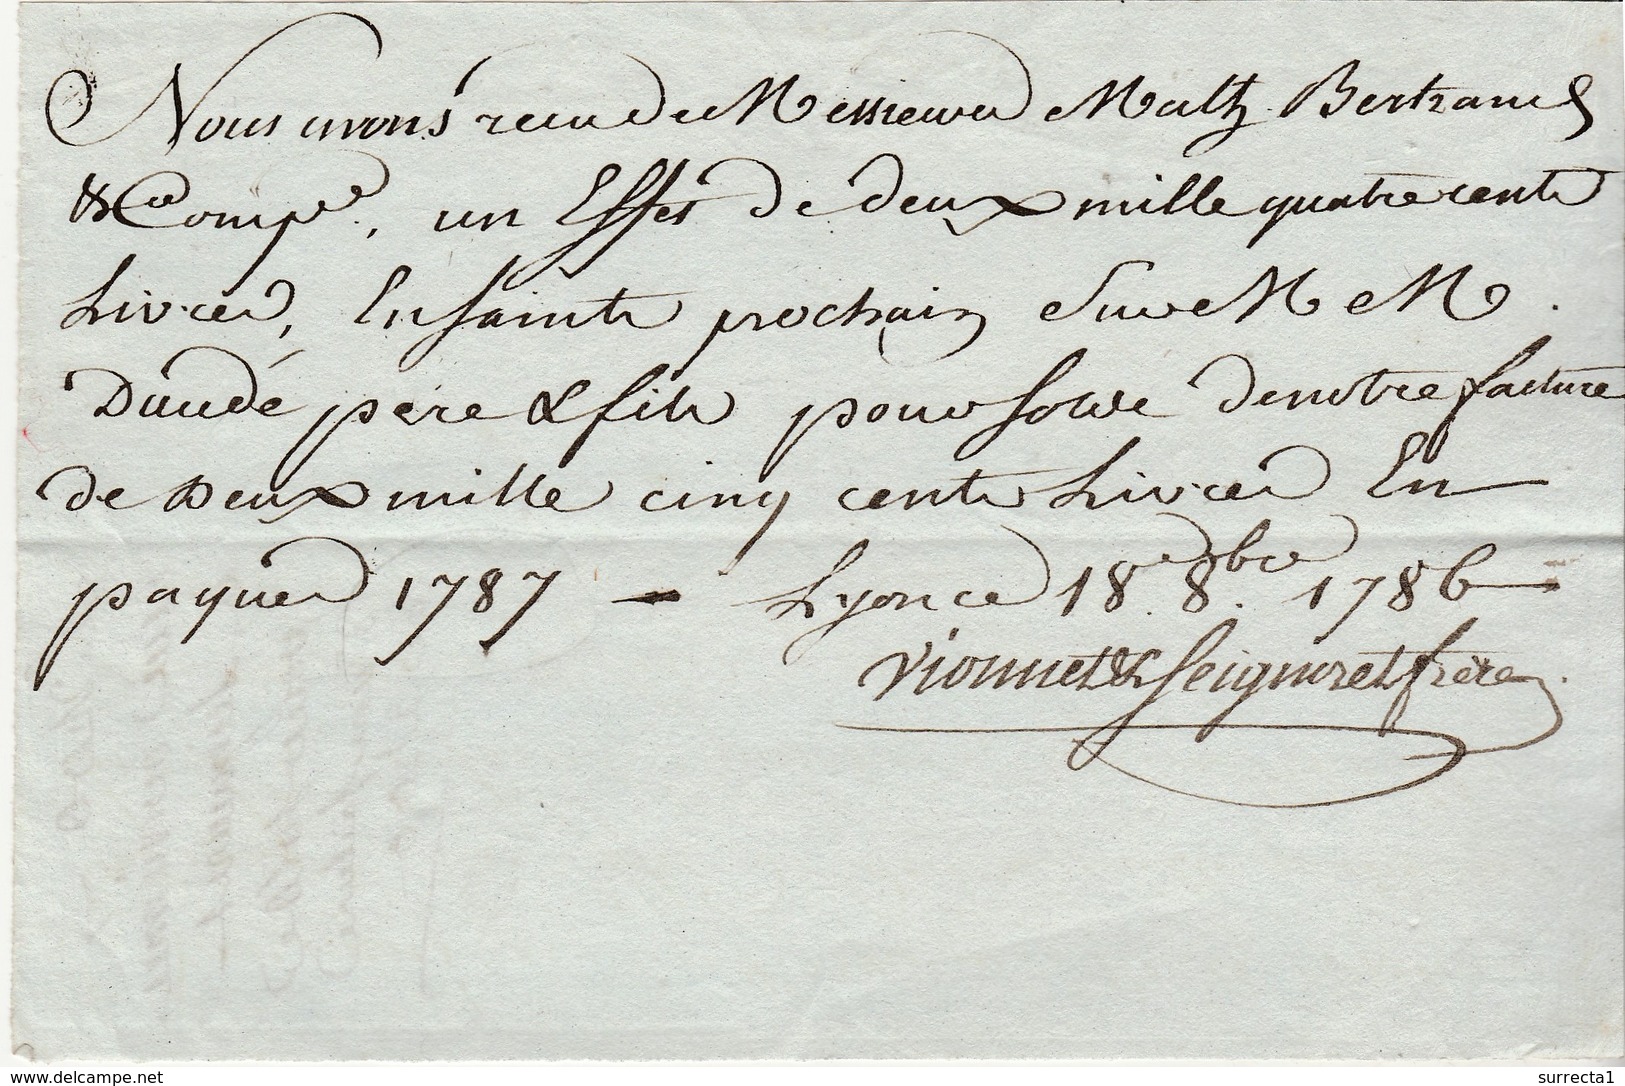 Nous avons recu de Messieurs Math Bertrand
& Compe, un Effet de deux mille quatre cents
Livres, En Sainte prochain Sur M M.
Daudé père & fils pour solde de notre facture
de Deux mille cinq cents Livres En
paques 1787 — Lyon ce 18.e 8.bre 1786
Vionnet & Seignoret frères
www.delcampe.net
surrecta1